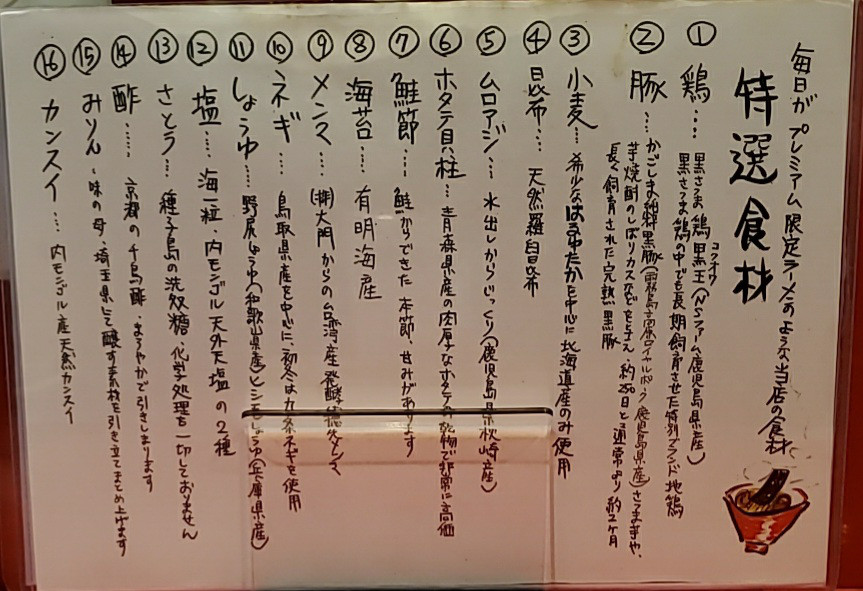 毎日がプレミアム限定ラーメンのような当店の食材
特選食材
① 鶏… 黒さつま鶏 黒王(NSファーム鹿児島県産)
コクオウ
黒さつま鶏の中でも長期飼育させた特別ブランド地鶏
② 豚… かごしま純粋黒豚(霧島高原ロイヤルポーク 鹿児島県産)さつまいもや、
芋焼酎のしぼりカスなどを与え、約250日と通常より約2ヶ月
長く飼育された完熟黒豚
③ 小麦… 希少なはるゆたかを中心に北海道産のみ使用
④ 昆布… 天然羅臼昆布
⑤ ムロアジ… 水出しからじっくり(鹿児島県枕崎産)
⑥ ホタテ貝柱… 青森県産の肉厚なホタテの乾物で非常に高価
⑦ 鮭節… 鮭からできた本節、甘みがあります
⑧ 海苔… 有明海産
⑨ メンマ… (株)大門からの台湾産発酵メンマ
⑩ ネギ… 鳥取県産を中心に、初冬は九条ネギを使用
⑪ しょうゆ… 野尻しょうゆ(和歌山県産)とシモしょうゆ(兵庫県産)
⑫ 塩… 海一粒、内モンゴル天外天塩の2種
⑬ さとう… 種子島の洗双糖、化学処理を一切しておりません
⑭ 酢…… 京都の千鳥酢 まろやかで引きしまります
⑮ みりん… 味の母、埼玉県にて醸す素材を引き立てまとめ上げます
⑯ カンスイ… 内モンゴル産天然カンスイ